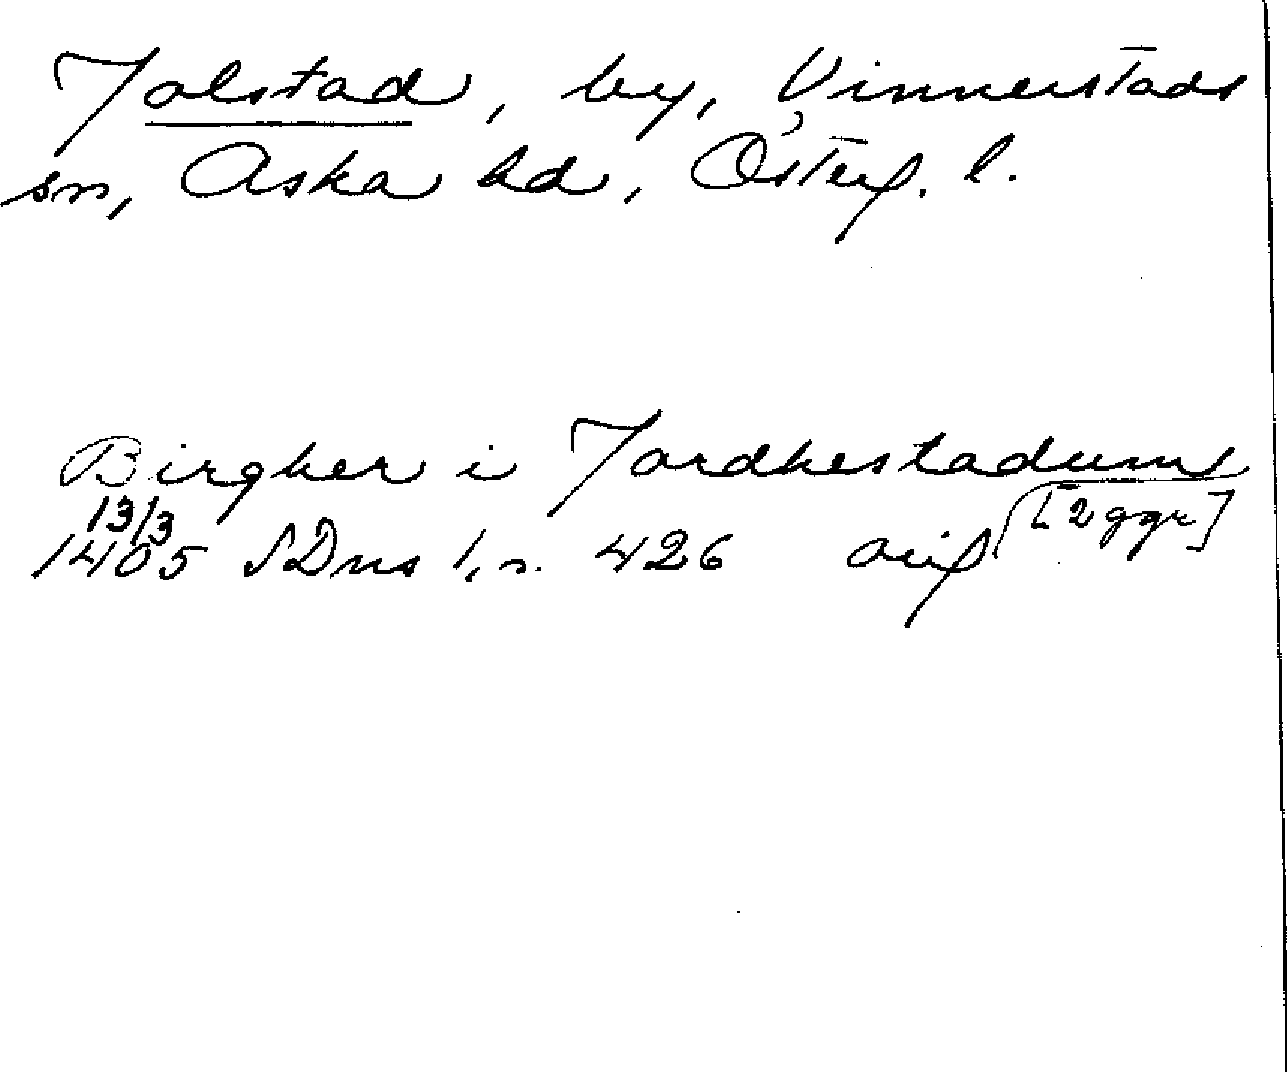 Jolstad, by, Vinnerstads
sn, Aska hd, Österg. l.
Birgher i Jordhestadum
[2 ggr]
13/3
1405 SDns 1, s. 426 orig